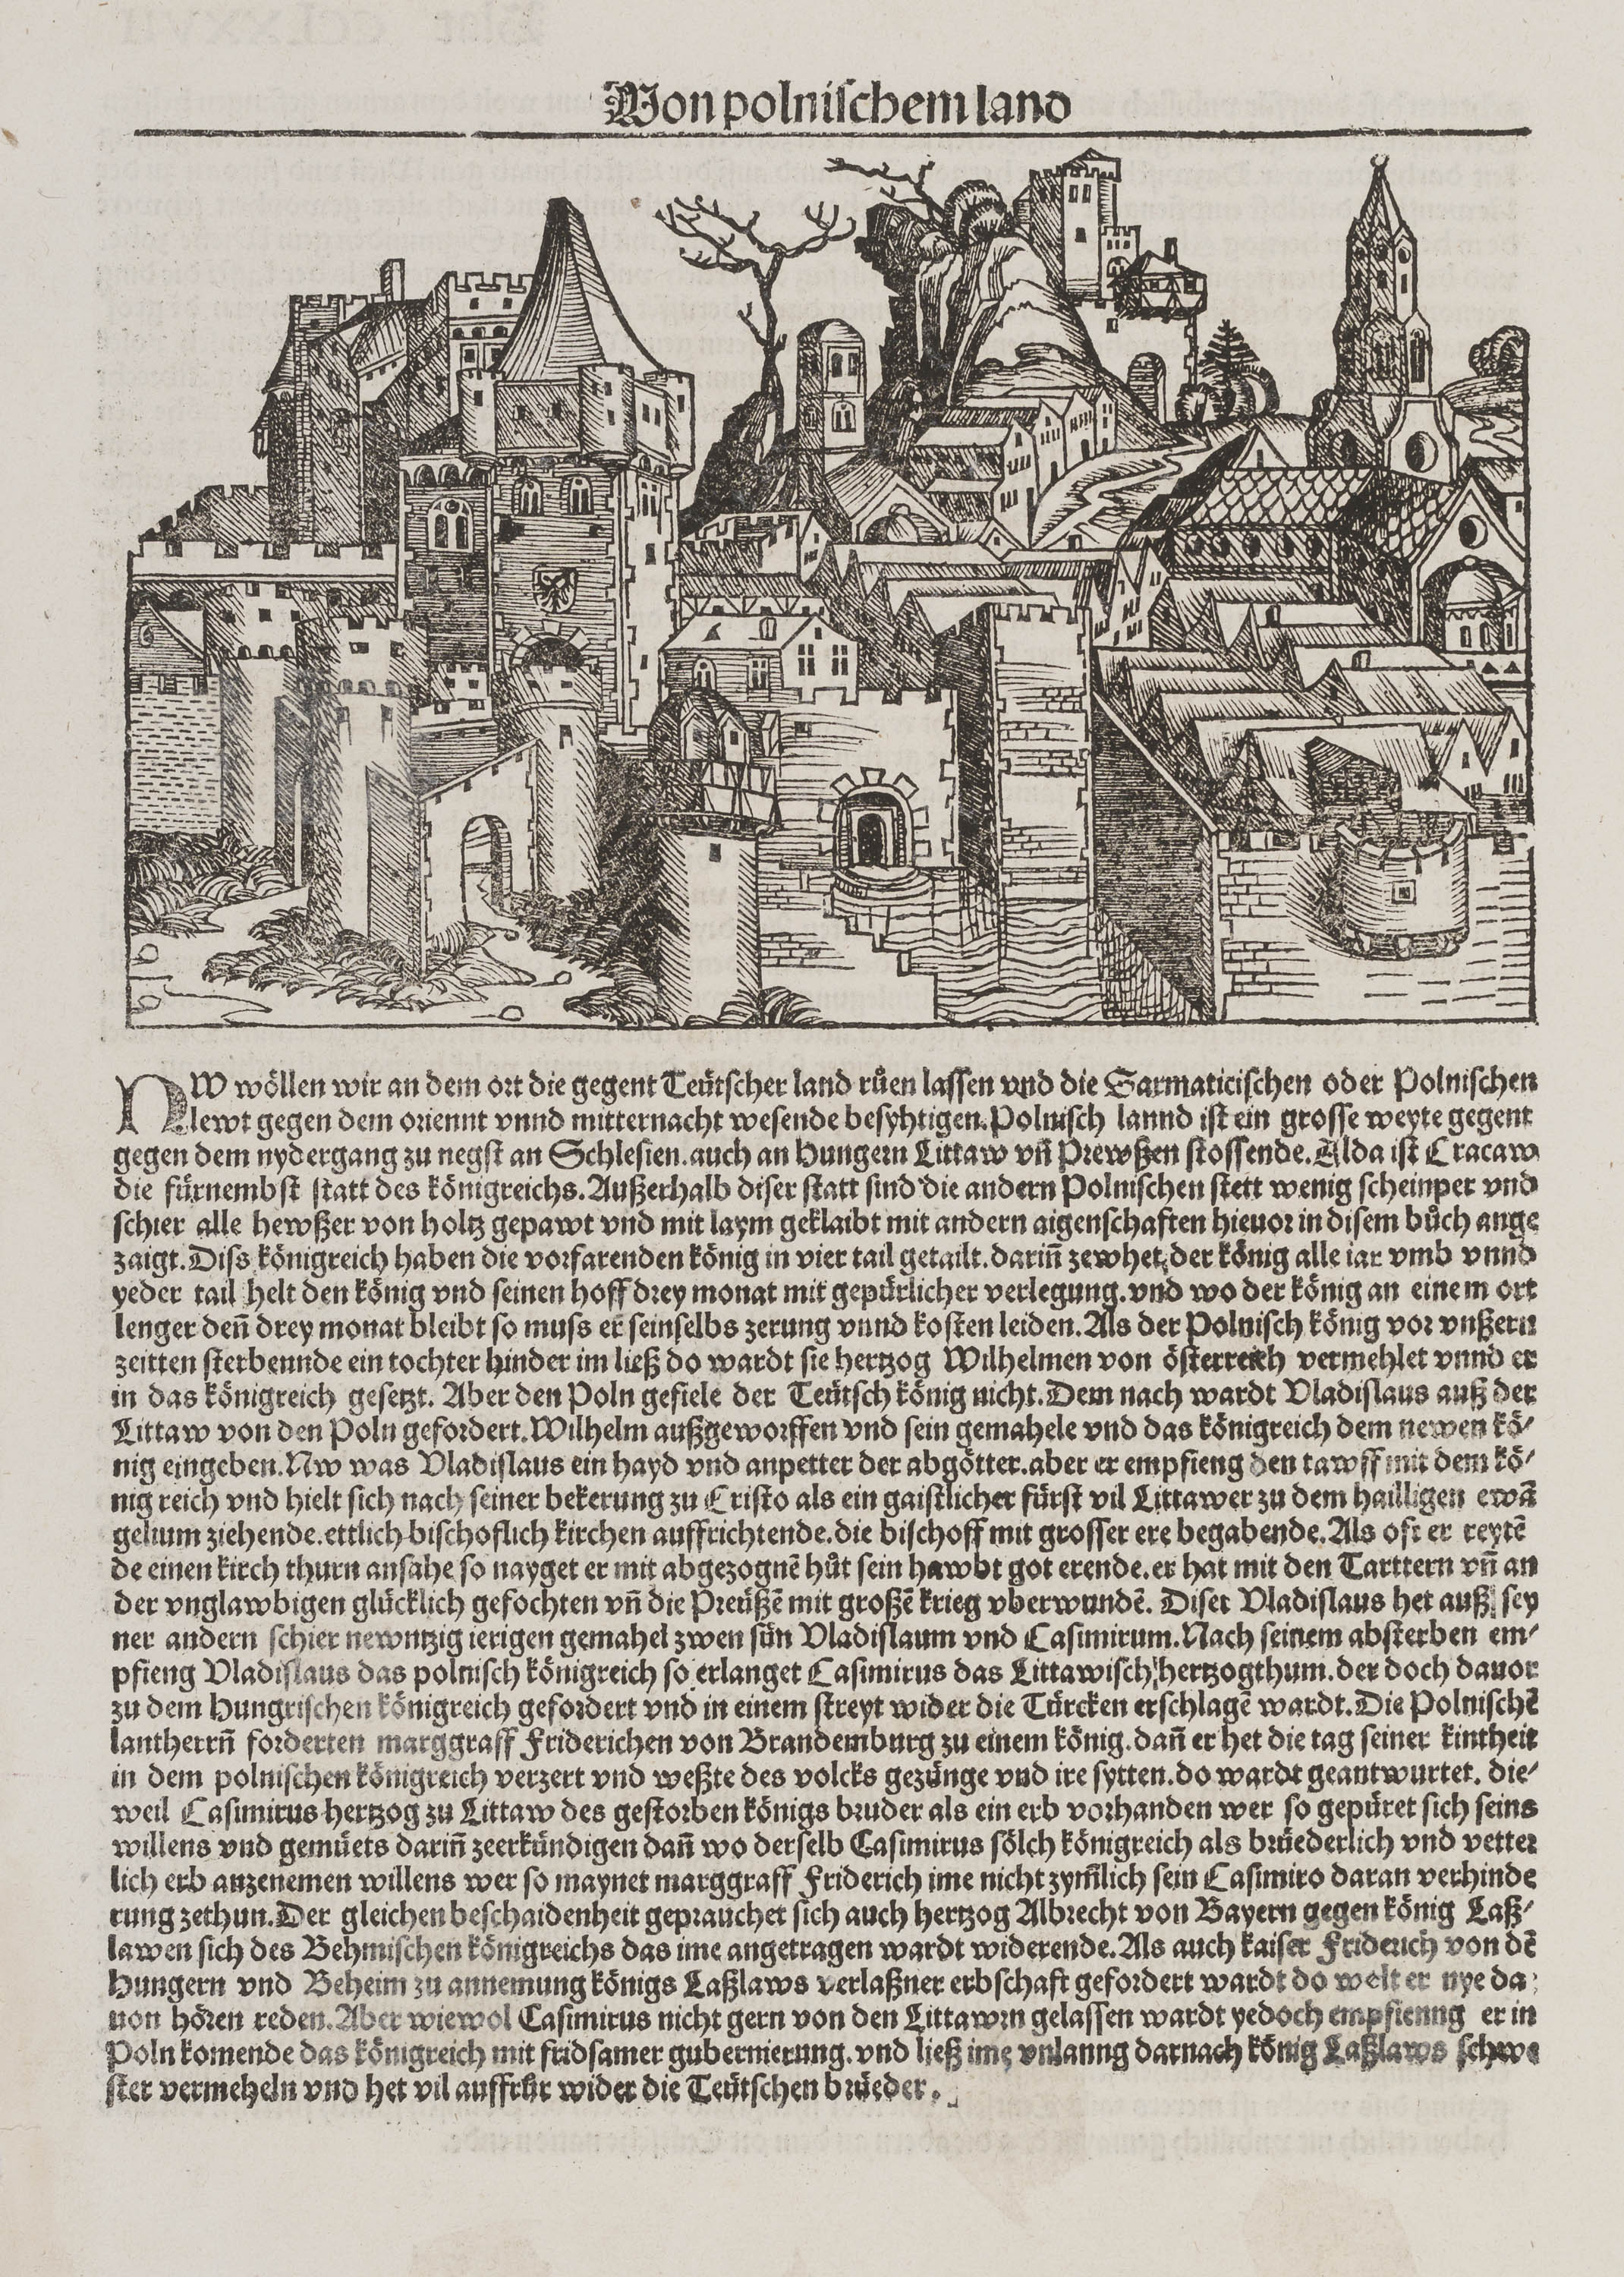 Von polnischem land
NW wöllen wir an dem ort die gegent Teütscher land růen lassen vnd die Sarmaticischen oder Polnischen
lewt gegen dem oriennt vnnd mitternacht wesende besyhtigen. Polnisch lannd ist ein grosse weyte gegent
gegen dem nydergang zu negst an Schlesien. auch an Hungern Littaw vn̄ Prewßen stossende. Alda ist Cracaw
die fürnembst statt des königreichs. Außerhalb diser statt sind die andern Polnischen stett wenig scheinper vnd
schier alle hewßer von holtz gepawt vnd mit laym geklaibt mit andern aigenschaften hieuor in disem bůch ange
zaigt. Diss königreich haben die vorfarenden könig in vier tail getailt. darin̄ zewhet der könig alle iar vmb vnnd
yeder tail helt den könig vnd seinen hoff drey monat mit gepürlicher verlegung. vnd wo der könig an einem ort
lenger den̄ drey monat bleibt so muss er seinselbs zerung vnnd kosten leiden. Als der Polnisch könig vor vnßern
zeitten sterbennde ein tochter hinder im ließ do wardt sie hertzog Wilhelmen von österreich vermehlet vnnd er
in das königreich gesetzt. Aber den Poln gefiele der Teütsch könig nicht. Dem nach wardt Vladislaus auß der
Littaw von den Poln gefordert. Wilhelm außgeworffen vnd sein gemahele vnd das königreich dem newen kö-
nig eingeben. Nw was Vladislaus ein hayd vnd anpetter der abgötter. aber er empfieng den tawff mit dem kö-
nig reich vnd hielt sich nach seiner bekerung zu Cristo als ein gaistlicher fürst vil Littawer zu dem hailligen ewā
gelium ziehende. ettlich bischoflich kirchen auffrichtende. die bischoff mit grosser ere begabende. Als oft er reytē
de einen kirch thurn ansahe so nayget er mit abgezognē hůt sein hawbt got erende. er hat mit den Tarttern vn̄ an
der vnglawbigen glücklich gefochten vn̄ die Preüßē mit großē krieg vberwundē. Diser Vladislaus het auß sey
ner andern schier newntzig ierigen gemahel zwen sün Vladislaum vnd Casimirum. Nach seinem absterben em-
pfieng Vladislaus das polnisch königreich so erlanget Casimirus das Littawisch hertzogthum. der doch dauor
zu dem Hungrischen königreich gefordert vnd in einem streyt wider die Türcken erschlagē wardt. Die Polnischē
lantherrn̄ forderten marggraff Friderichen von Brandemburg zu einem könig. dan̄ er het die tag seiner kintheit
in dem polnischen königreich verzert vnd weßte des volcks gezünge vnd ire sytten. do wardt geantwurtet. die-
weil Casimirus hertzog zu Littaw des gestorben königs bruder als ein erb vorhanden wer so gepüret sich seins
willens vnd gemüets darin̄ zeerkündigen dan̄ wo derselb Casimirus sölch königreich als brüederlich vnd vetter
lich erb anzenemen willens wer so maynet marggraff Friderich ime nicht zym̄lich sein Casimiro daran verhinde
rung zethun. Der gleichen beschaidenheit geprauchet sich auch hertzog Albrecht von Bayern gegen könig Laß-
lawen sich des Behmischen königreichs das ime angetragen wardt widerende. Als auch kaiser Friderich von dē
Hungern vnd Beheim zu annemung königs Laßlaws verlaßner erbschaft gefordert wardt do wolt er nye da
uon hören reden. Aber wiewol Casimirus nicht gern von den Littawrn gelassen wardt yedoch empfienng er in
Poln komende das königreich mit fridsamer gubernierung. vnd ließ ime vnlanng darnach könig Laßlaws schwe
ster vermeheln vnd het vil auffrur wider die Teütschen brüeder.